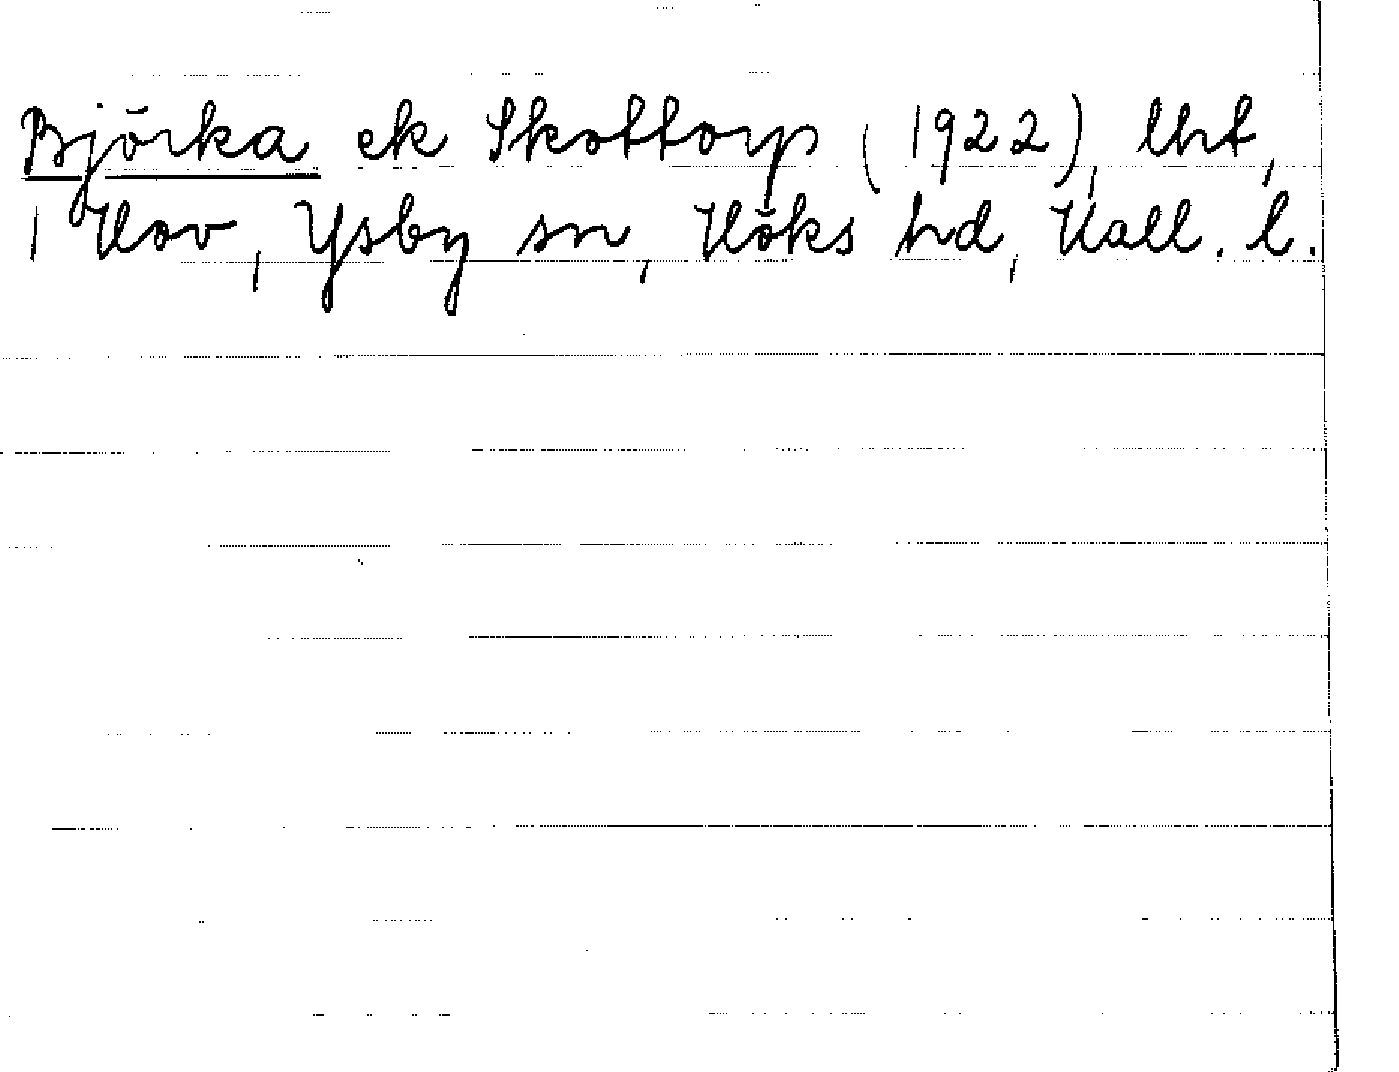 Björka ek Skottorp (1922), lht,
1 Hov, Ysby sn, Höks hd, Hall. l.